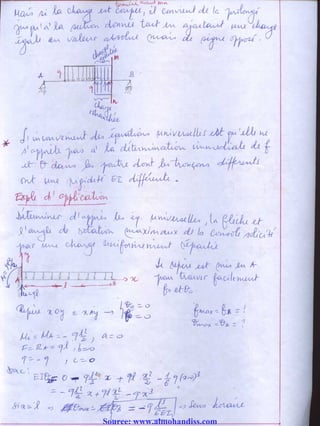 Mais si la charge est coupée, il convient de la prolonger
jusqu'à la section donnée tout en ajoutant une charge
égale en valeur absolue mais de signe opposé.
charge
ajoutée
m
q
A
B
n
charge
retranchée
* L'inconvénient des équations universelles est qu'elle ne
s'appelle pas à la détermination immédiate de f
et θ dans les poutres dont les tronçons différents
ont une rigidité EI différente.
Exple d'application
Déterminer d'après les eq. universelles, la flèche et
l'angle de rotation maximaux de la console sollicité
par une charge uniformément répartie
y
q
x
l
Le repère est mis en A
pour trouver facilement
f₀ et θ₀
Repère xoy = xAy → { θ₀ = 0
f₀ = 0
fmax = fB = ?
θmax = θB = ?
M₀ = MA = - ql²/2 , a = 0
F = RA = ql , b = 0
q = - q , c = 0
EIθ = 0 - ql²/2 x + ql x²/2 - 1/6 q (x-0)³
= - ql²/2 x + ql x²/2 - q x³
six = l → = - q l³/6EI → Sens horaire
Source: www.almohandiss.com